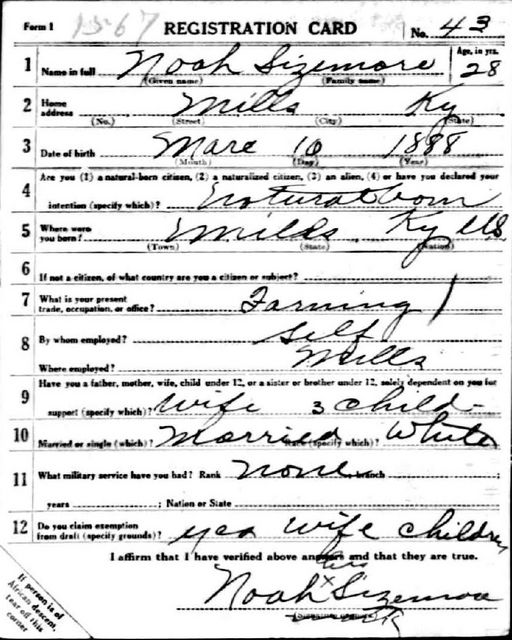 Form 1 15-67 REGISTRATION CARD No. 43
1 Name in full Noah Sizemore Age, in yrs. 28
(Given name) (Family name)
2 Home address Mills Ky
(No.) (Street) (City) (State)
3 Date of birth Marc 16 1888
(Month) (Day) (Year)
4 Are you (1) a natural-born citizen, (2) a naturalized citizen, (3) an alien, (4) or have you declared your
intention (specify which)? natural born
5 Where were you born? Mills Ky US
(Town) (State) (Nation)
6 If not a citizen, of what country are you a citizen or subject?
7 What is your present trade, occupation, or office? Farming
8 By whom employed? Self
Where employed? Mills
9 Have you a father, mother, wife, child under 12, or a sister or brother under 12, solely dependent on you for
support (specify which)? Wife 3 child-
10 Married or single (which)? Married Race (specify which)? White
11 What military service have you had? Rank none branch ;
years ; Nation or State
12 Do you claim exemption from draft (specify grounds)? yea wife children
I affirm that I have verified above answers and that they are true.
his
Noah x Sizemore
If person is of
African descent,
tear off this
corner